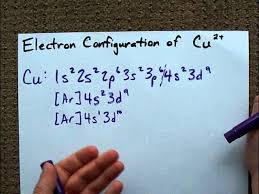 Electron Configuration of Cu²⁺
Cu: 1s²2s²2p⁶3s²3p⁶4s²3d⁹
[Ar]4s²3d⁹
[Ar]4s¹3d¹⁰